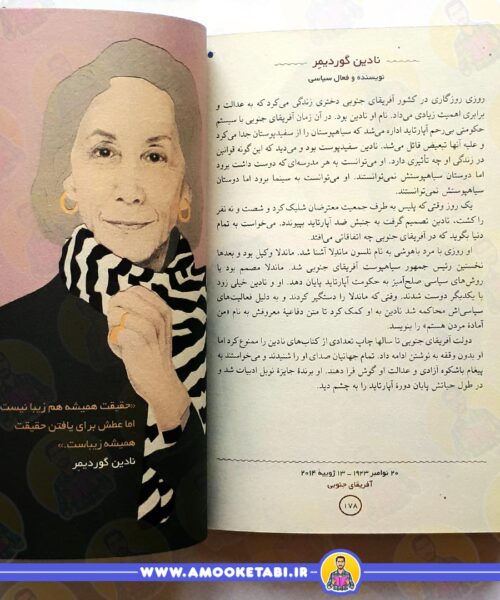 نادین گوردیمِر
نویسنده و فعال سیاسی
روزی روزگاری در کشور آفریقای جنوبی دختری زندگی می‌کرد که به عدالت و
برابری اهمیت زیادی می‌داد. نام او نادین بود. در آن زمان آفریقای جنوبی با سیستم
حکومتی بی‌رحم آپارتاید اداره می‌شد که سیاهپوستان را از سفیدپوستان جدا می‌کرد
و علیه آنها تبعیض قائل می‌شد. نادین سفیدپوست بود و می‌دید که این گونه قوانین
در زندگی او چه تأثیری دارد. او می‌توانست به هر مدرسه‌ای که دوست داشت برود
اما دوستان سیاهپوستش نمی‌توانستند. او می‌توانست به سینما برود اما دوستان
سیاهپوستش نمی‌توانستند.
یک روز وقتی که پلیس به طرف جمعیت معترضان شلیک کرد و شصت و نه نفر
را کشت، نادین تصمیم گرفت به جنبش ضد آپارتاید بپیوندد. می‌خواست به تمام
دنیا بگوید که در آفریقای جنوبی چه اتفاقاتی می‌افتد.
او روزی با مرد باهوشی به نام نلسون ماندلا آشنا شد. ماندلا وکیل بود و بعدها
نخستین رئیس جمهور سیاهپوست آفریقای جنوبی شد. ماندلا مصمم بود با
روش‌های سیاسی صلح‌آمیز به حکومت آپارتاید پایان دهد. او و نادین خیلی زود
با یکدیگر دوست شدند. وقتی که ماندلا را دستگیر کردند و به دلیل فعالیت‌های
سیاسی‌اش محاکمه شد نادین به او کمک کرد تا متن دفاعیهٔ معروفش به نام «من
آمادهٔ مردن هستم» را بنویسد.
دولت آفریقای جنوبی تا سالها چاپ تعدادی از کتاب‌های نادین را ممنوع کرد اما
او بدون وقفه به نوشتن ادامه داد. تمام جهانیان صدای او را شنیدند و می‌خواستند به
پیغام باشکوه آزادی و عدالت او گوش فرا دهند. او برندهٔ جایزهٔ نوبل ادبیات شد و
در طول حیاتش پایان دورهٔ آپارتاید را به چشم دید.
۲۰ نوامبر ۱۹۲۳ – ۱۳ ژوییهٔ ۲۰۱۴
آفریقای جنوبی
۱۷۸
«حقیقت همیشه هم زیبا نیست
اما عطش برای یافتن حقیقت
همیشه زیباست.»
نادین گوردیمر
WWW.AMOOKETABI.IR